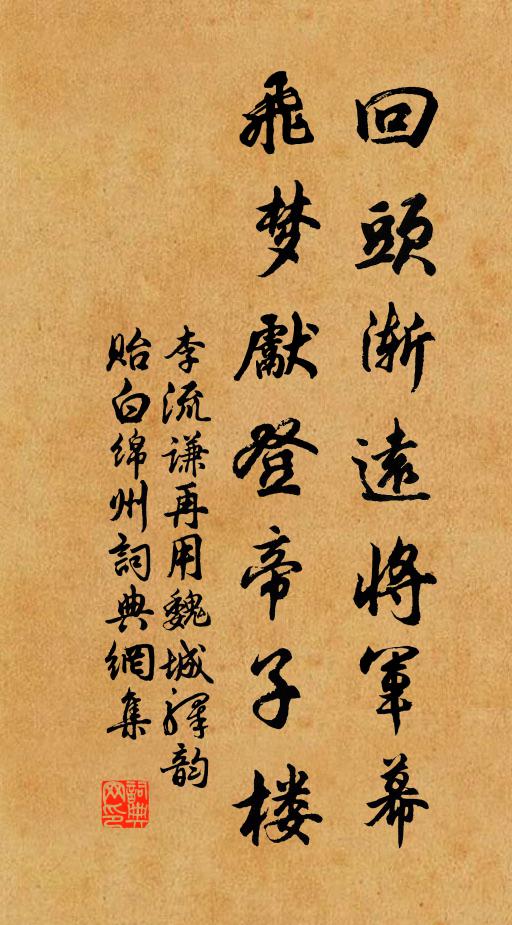 回頭漸遠將軍幕
飛梦獻登帝子楼
李流谦再用魏城驿韵
贻白绵州詞典網集
詞典网印